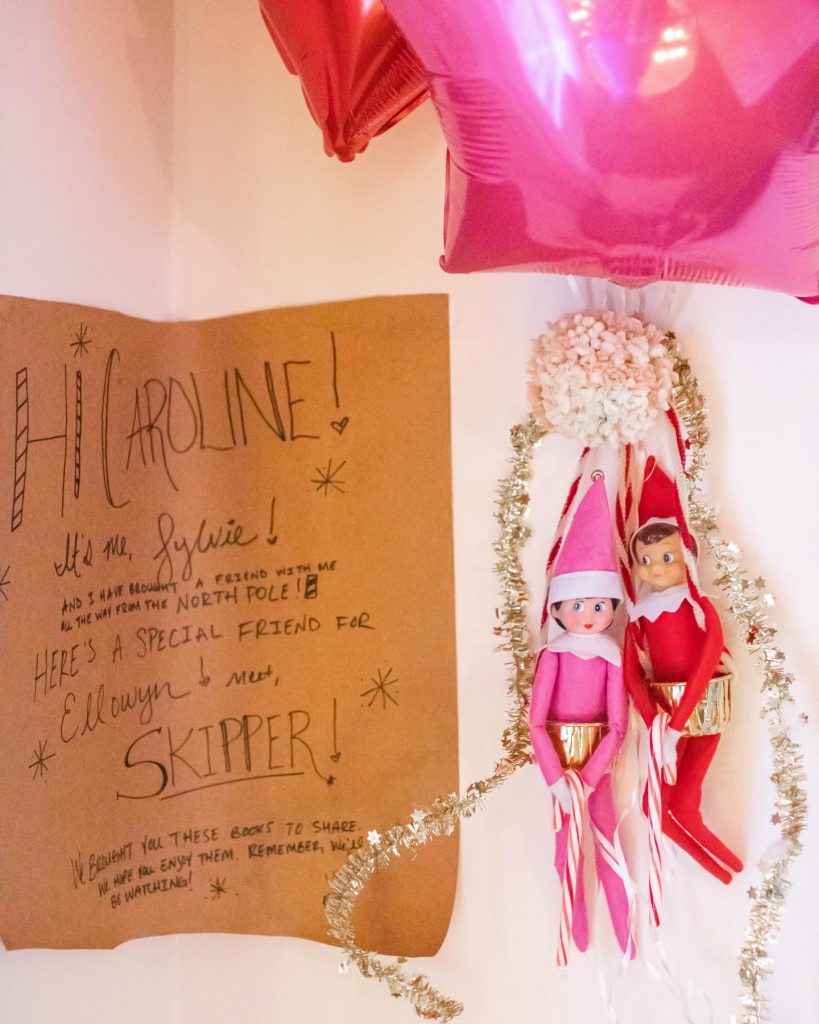 HI CAROLINE!
It's me, Sylvie!
AND I HAVE BROUGHT A FRIEND WITH ME
ALL THE WAY FROM THE NORTH POLE!
HERE'S A SPECIAL FRIEND FOR
Ellowyn! MEET,
SKIPPER!
WE BROUGHT YOU THESE BOOKS TO SHARE.
WE HOPE YOU ENJOY THEM. REMEMBER, WE'LL
BE WATCHING!